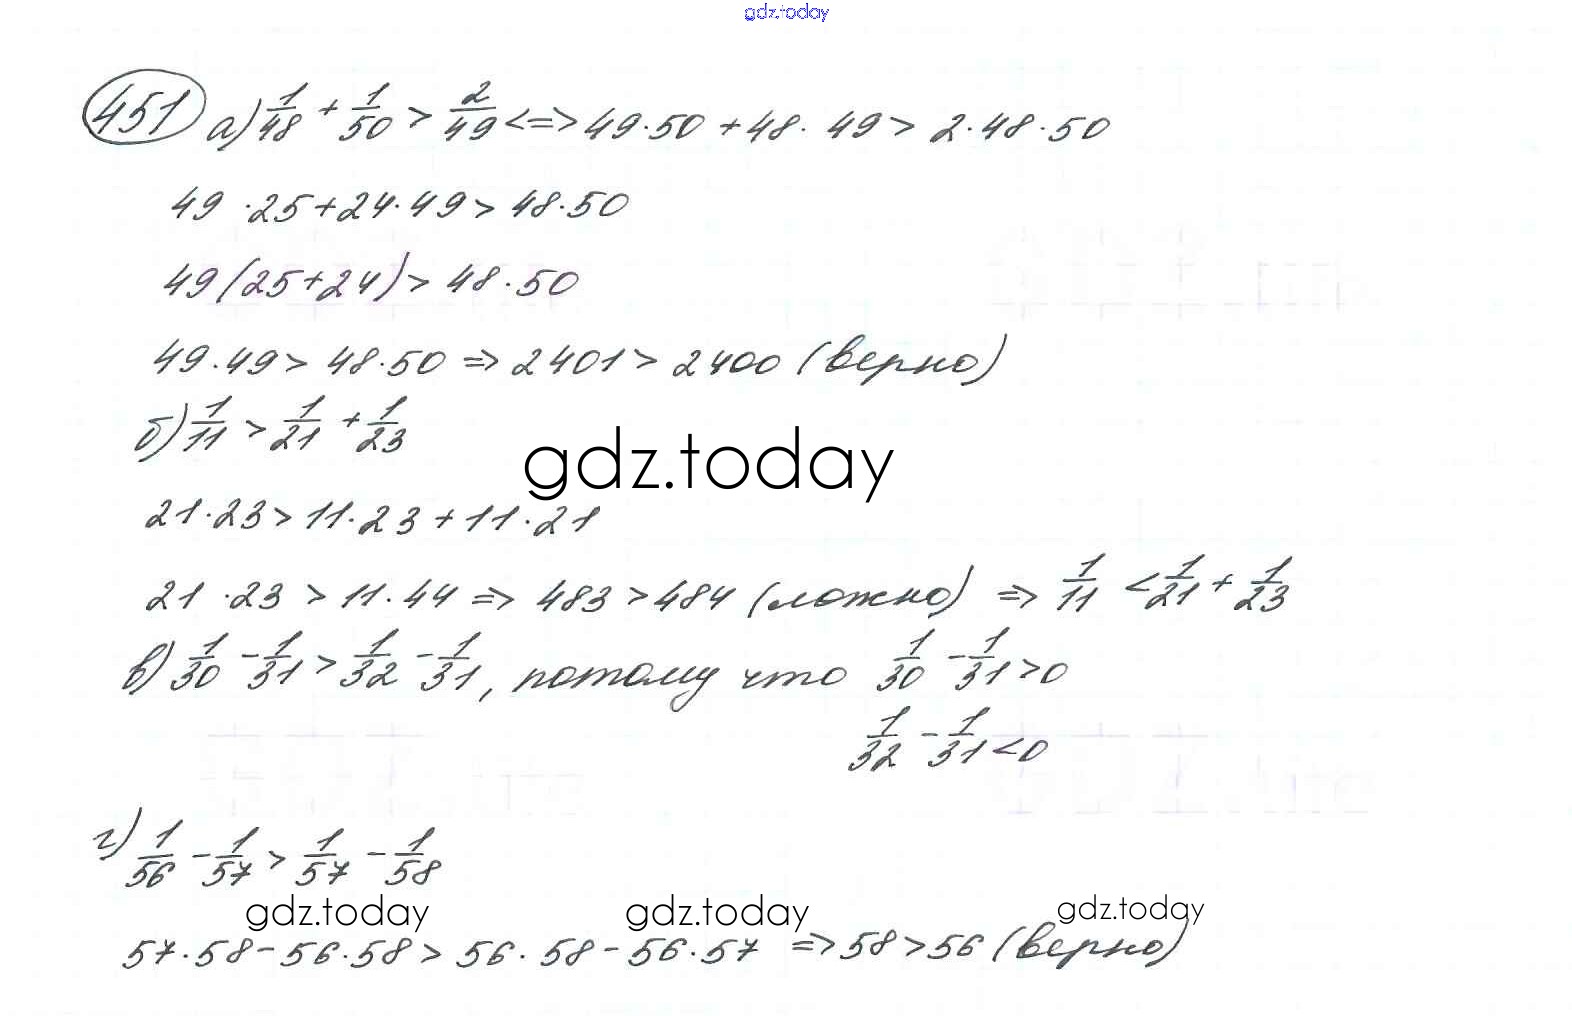 gdz.today
451 а) 1/48 + 1/50 > 2/49 <=> 49·50 + 48·49 > 2·48·50
49·25+24·49 > 48·50
49(25+24) > 48·50
49·49 > 48·50 => 2401 > 2400 (верно)
б) 1/11 > 1/21 + 1/23
gdz.today
21·23 > 11·23 + 11·21
21·23 > 11·44 => 483 > 484 (ложно) => 1/11 < 1/21 + 1/23
в) 1/30 - 1/31 > 1/32 - 1/31, потому что 1/30 - 1/31 > 0
1/32 - 1/31 < 0
г) 1/56 - 1/57 > 1/57 - 1/58
gdz.today gdz.today gdz.today
57·58 - 56·58 > 56·58 - 56·57 => 58 > 56 (верно)